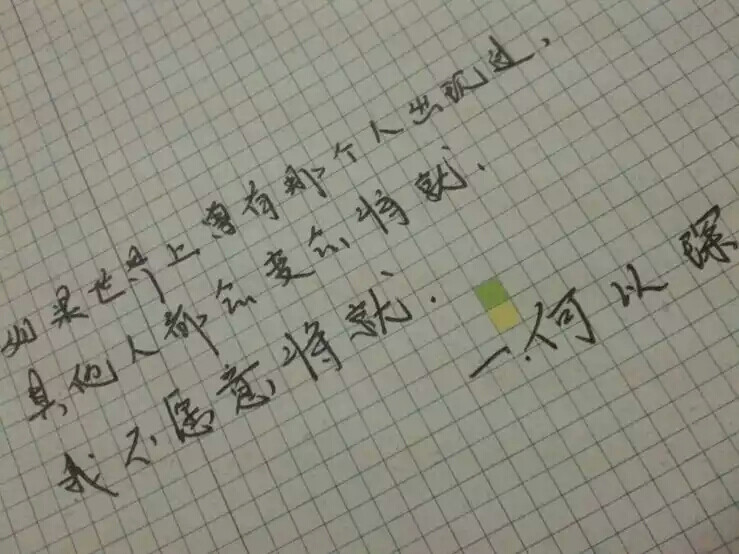 如果世界上曾有那个人出现过,
其他人都会变会将就.
我不愿意将就.
一.何以琛